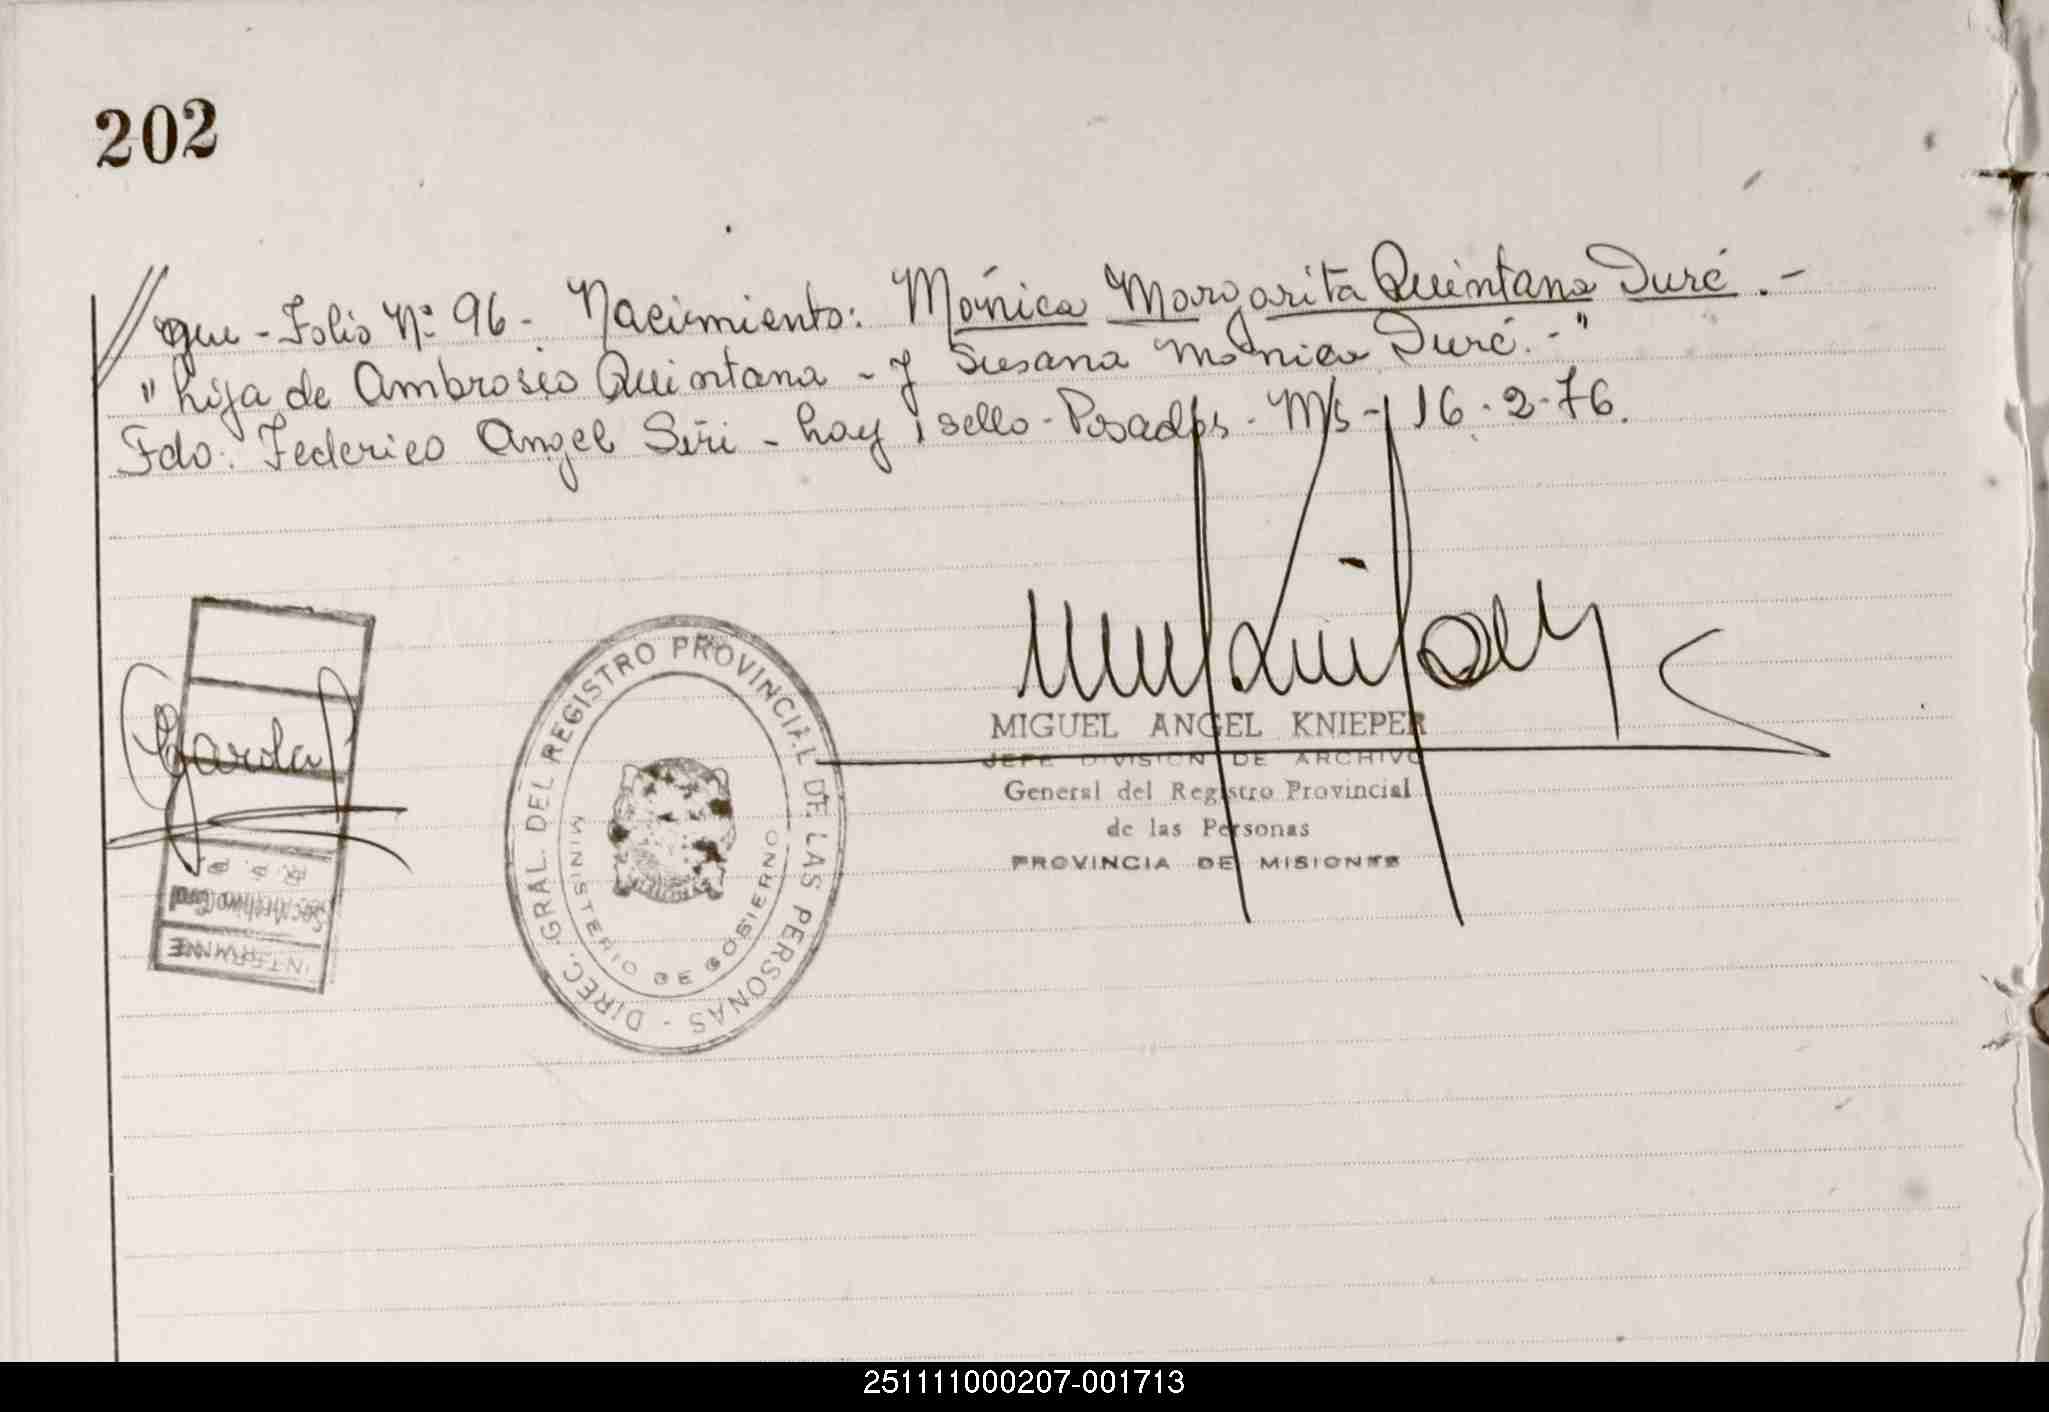 202
// que - Folio Nº 96 - Nacimiento: Mónica Margarita Quintana Duré. -
" hija de Ambrosio Quintana - y Susana Mónica Duré. - "
Fdo. Federico Angel Siri - hay 1 sello - Posadas - Ms - 16 - 2 - 76.
DIREC. GRAL. DEL REGISTRO PROVINCIAL DE LAS PERSONAS -
MINISTERIO DE GOBIERNO
MIGUEL ANGEL KNIEPER
JEFE DIVISION DE ARCHIVO
General del Registro Provincial
de las Personas
PROVINCIA DE MISIONES
R. P. P.
INTERVINE
251111000207-001713